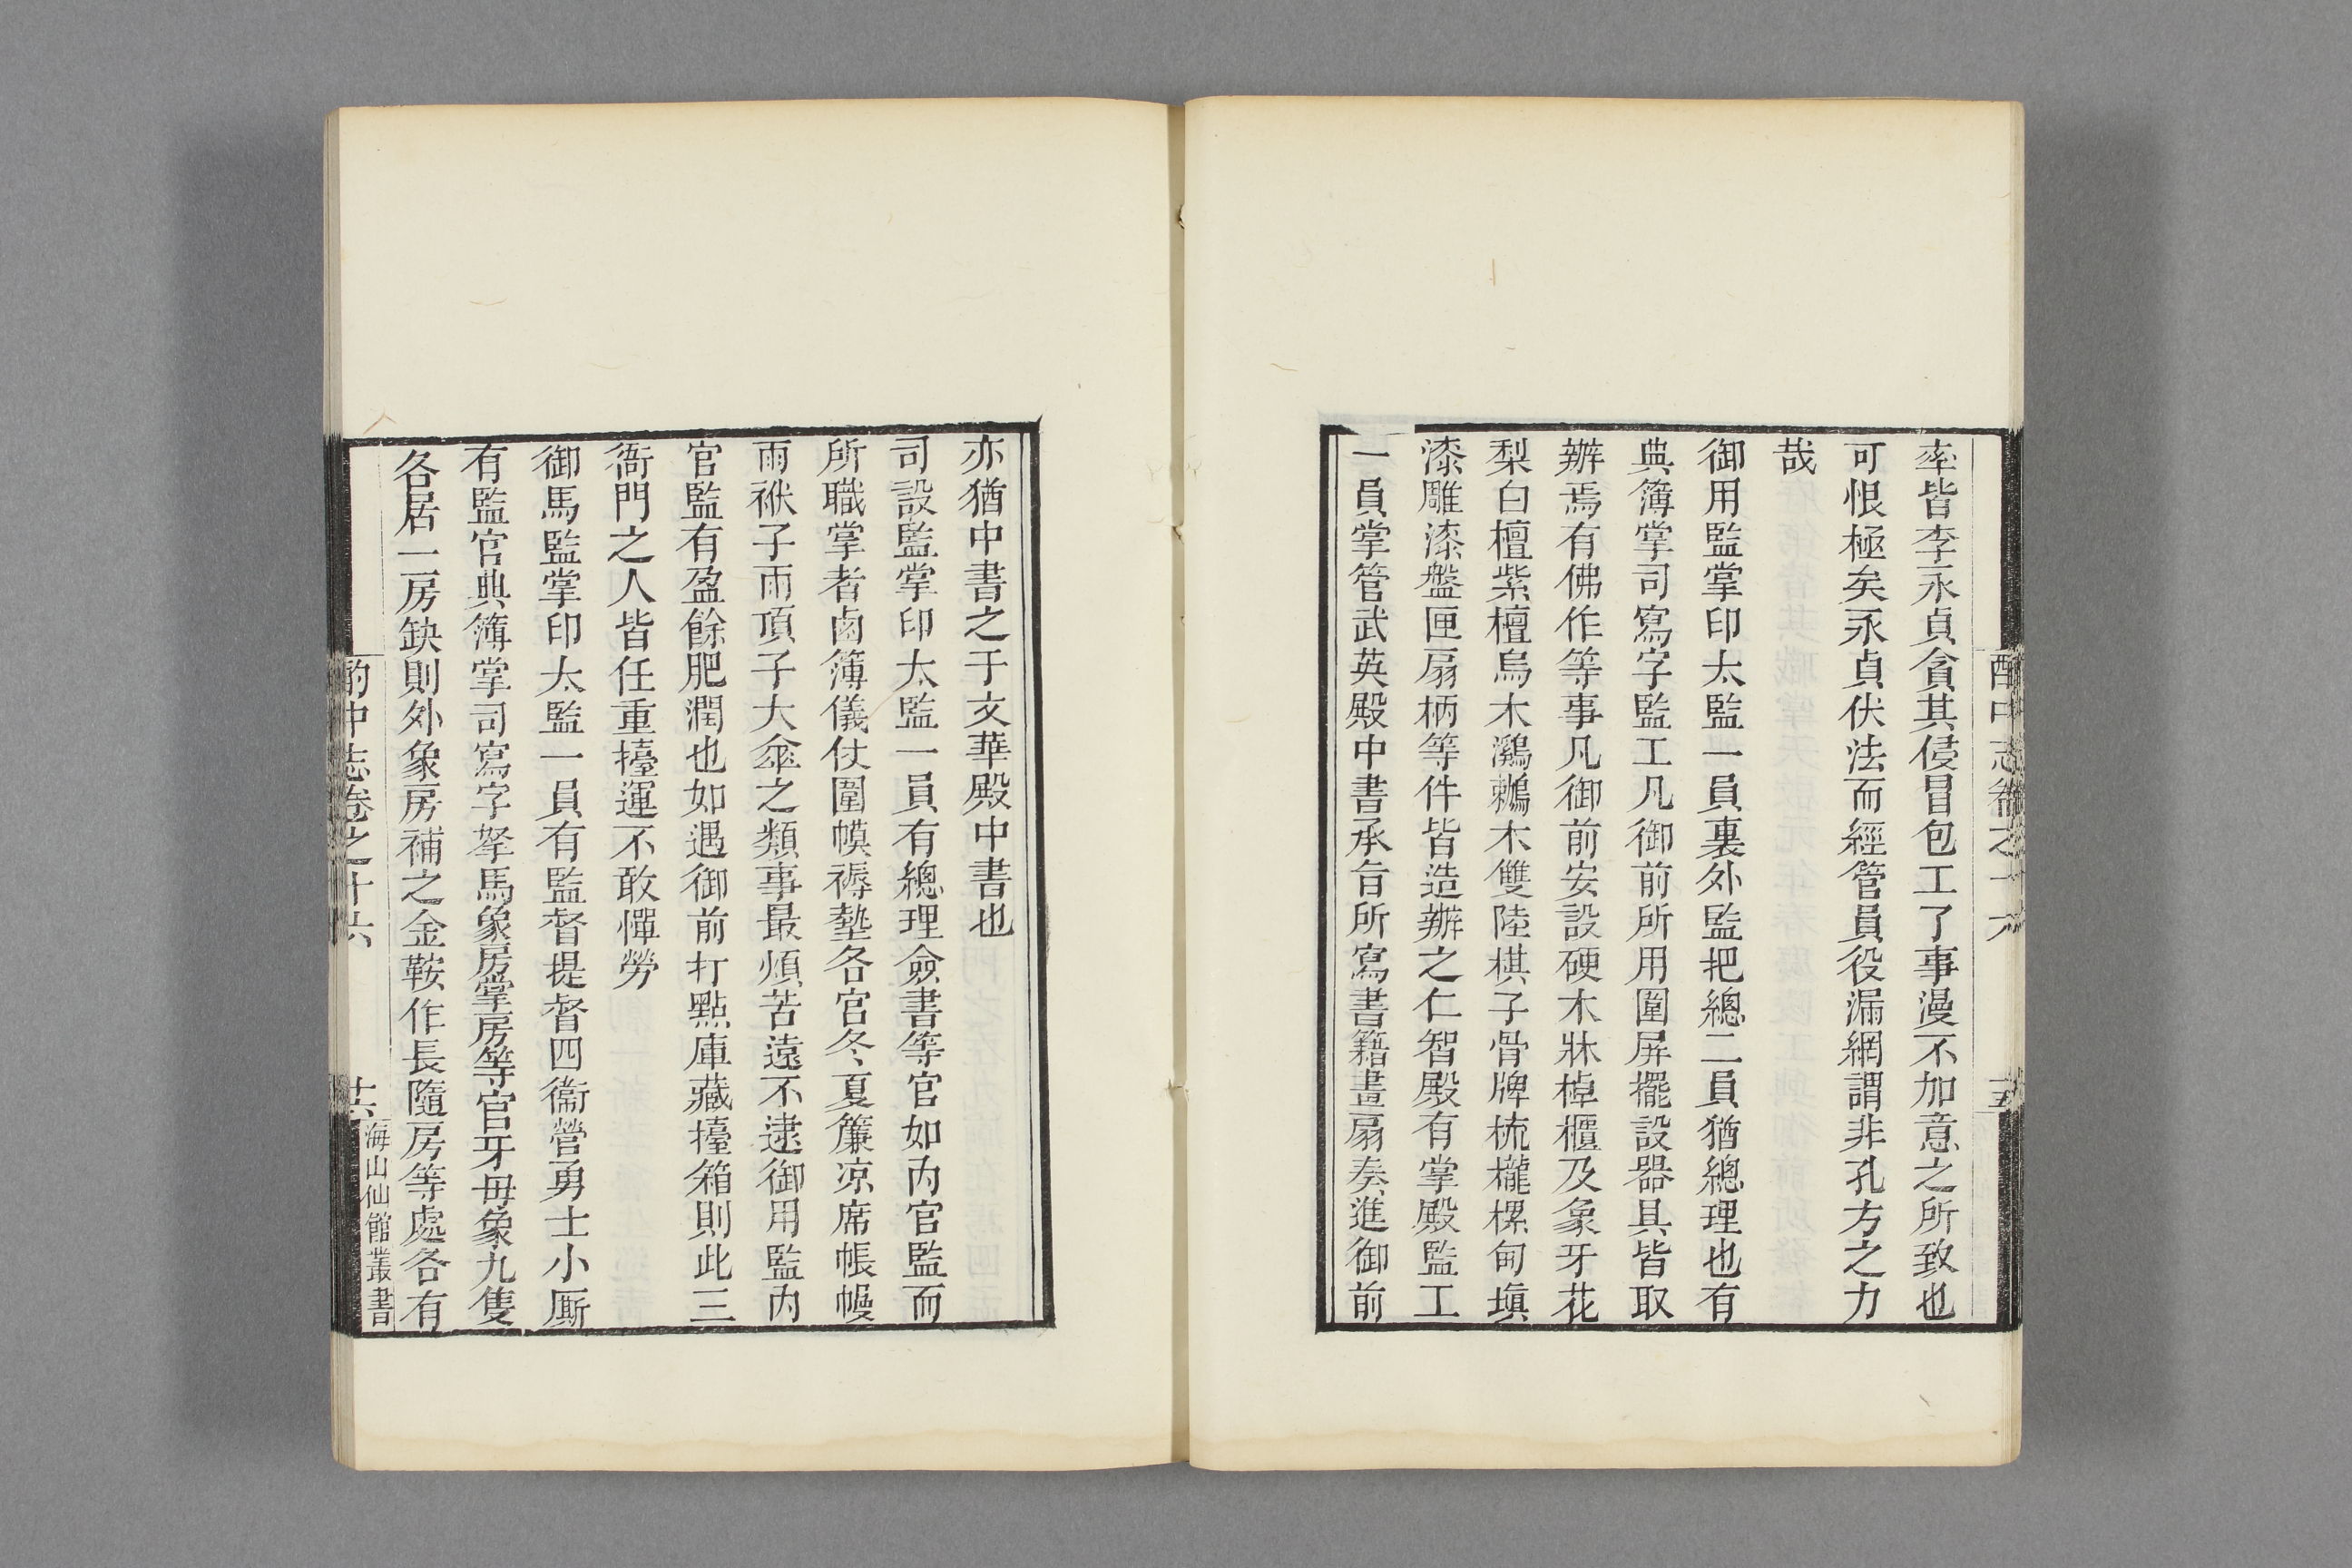 率皆李永貞貪其侵冒包工了事漫不加意之所致也
可恨極矣永貞伏法而經管員役漏網謂非孔方之力
哉
御用監掌印太監一員裏外監把總二員猶總理也有
典簿掌司寫字監工凡御前所用圍屏擺設器具皆取
辦焉有佛作等事凡御前安設硬木牀棹櫃及象牙花
梨白檀紫檀烏木鸂鶒木雙陸棋子骨牌梳櫳樏甸塡
漆雕漆盤匣扇柄等件皆造辦之仁智殿有掌殿監工
一員掌管武英殿中書承旨所寫書籍畫扇奏進御前
亦猶中書之于文華殿中書也
司設監掌印太監一員有總理僉書等官如內官監而
所職掌者鹵簿儀仗圍幙褥墊各宮冬夏簾凉席帳幔
雨袱子雨頂子大傘之類事最煩苦遠不逮御用監內
官監有盈餘肥潤也如遇御前打點庫藏擡箱則此三
衙門之人皆任重擡運不敢憚勞
御馬監掌印太監一員有監督提督四衛營勇士小厮
有監官典簿掌司寫字拏馬象房掌房等官牙母象九隻
各居一房缺則外象房補之金鞍作長隨房等處各有
酌中志卷之十六
共六
海山仙館叢書